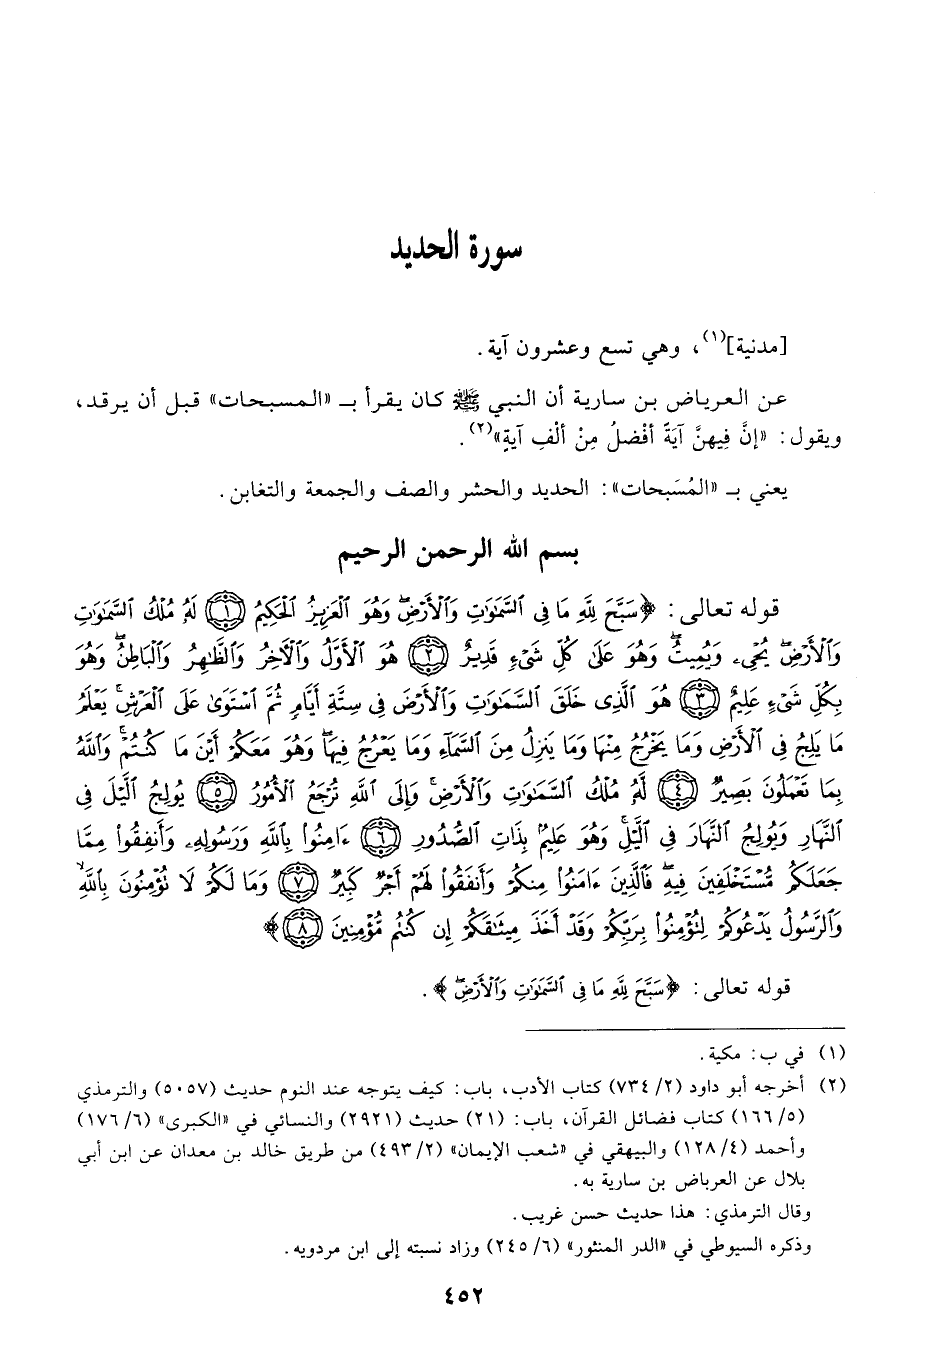 سورة الحديد
[مدنية](١)، وهي تسع وعشرون آية.
عن العرياض بن سارية أن النبي ﷺ كان يقرأ بـ «المسبحات» قبل أن يرقد،
ويقول: «إنَّ فِيهنَّ آيَةً أفْضلُ مِنْ ألْفِ آيَةٍ»(٢).
يعني بـ «المُسَبحات»: الحديد والحشر والصف والجمعة والتغابن.
بسم الله الرحمن الرحيم
قوله تعالى: ﴿سَبَّحَ لِلَّهِ مَا فِي السَّمَٰوَٰتِ وَٱلْأَرْضِۖ وَهُوَ ٱلْعَزِيزُ ٱلْحَكِيمُ ﴿١﴾ لَهُۥ مُلْكُ ٱلسَّمَٰوَٰتِ
وَٱلْأَرْضِۖ يُحْيِۦ وَيُمِيتُۖ وَهُوَ عَلَىٰ كُلِّ شَيْءٍ قَدِيرٌ ﴿٢﴾ هُوَ ٱلْأَوَّلُ وَٱلْأٓخِرُ وَٱلظَّٰهِرُ وَٱلْبَاطِنُۖ وَهُوَ
بِكُلِّ شَيْءٍ عَلِيمٌ ﴿٣﴾ هُوَ ٱلَّذِي خَلَقَ ٱلسَّمَٰوَٰتِ وَٱلْأَرْضَ فِي سِتَّةِ أَيَّامٍ ثُمَّ ٱسْتَوَىٰ عَلَى ٱلْعَرْشِۚ يَعْلَمُ
مَا يَلِجُ فِي ٱلْأَرْضِ وَمَا يَخْرُجُ مِنْهَا وَمَا يَنزِلُ مِنَ ٱلسَّمَآءِ وَمَا يَعْرُجُ فِيهَاۖ وَهُوَ مَعَكُمْ أَيْنَ مَا كُنتُمْۚ وَٱللَّهُ
بِمَا تَعْمَلُونَ بَصِيرٌ ﴿٤﴾ لَّهُۥ مُلْكُ ٱلسَّمَٰوَٰتِ وَٱلْأَرْضِۚ وَإِلَى ٱللَّهِ تُرْجَعُ ٱلْأُمُورُ ﴿٥﴾ يُولِجُ ٱلَّيْلَ فِي
ٱلنَّهَارِ وَيُولِجُ ٱلنَّهَارَ فِي ٱلَّيْلِۚ وَهُوَ عَلِيمٌۢ بِذَاتِ ٱلصُّدُورِ ﴿٦﴾ ءَامِنُوا۟ بِٱللَّهِ وَرَسُولِهِۦ وَأَنفِقُوا۟ مِمَّا
جَعَلَكُم مُّسْتَخْلَفِينَ فِيهِۖ فَٱلَّذِينَ ءَامَنُوا۟ مِنكُمْ وَأَنفَقُوا۟ لَهُمْ أَجْرٌ كَبِيرٌ ﴿٧﴾ وَمَا لَكُمْ لَا تُؤْمِنُونَ بِٱللَّهِۙ
وَٱلرَّسُولُ يَدْعُوكُمْ لِتُؤْمِنُوا۟ بِرَبِّكُمْ وَقَدْ أَخَذَ مِيثَٰقَكُمْ إِن كُنتُم مُّؤْمِنِينَ ﴿٨﴾﴾
قوله تعالى: ﴿سَبَّحَ لِلَّهِ مَا فِي ٱلسَّمَٰوَٰتِ وَٱلْأَرْضِۖ﴾.
(١) في ب: مكية.
(٢) أخرجه أبو داود (٧٣٤/٢) كتاب الأدب، باب: كيف يتوجه عند النوم حديث (٥٠٥٧) والترمذي
(١٦٦/٥) كتاب فضائل القرآن، باب: (٢١) حديث (٢٩٢١) والنسائي في «الكبرى» (١٧٦/٦)
وأحمد (١٢٨/٤) والبيهقي في «شعب الإيمان» (٤٩٣/٢) من طريق خالد بن معدان عن ابن أبي
بلال عن العرباض بن سارية به.
وقال الترمذي: هذا حديث حسن غريب.
وذكره السيوطي في «الدر المنثور» (٢٤٥/٦) وزاد نسبته إلى ابن مردويه.
٤٥٢